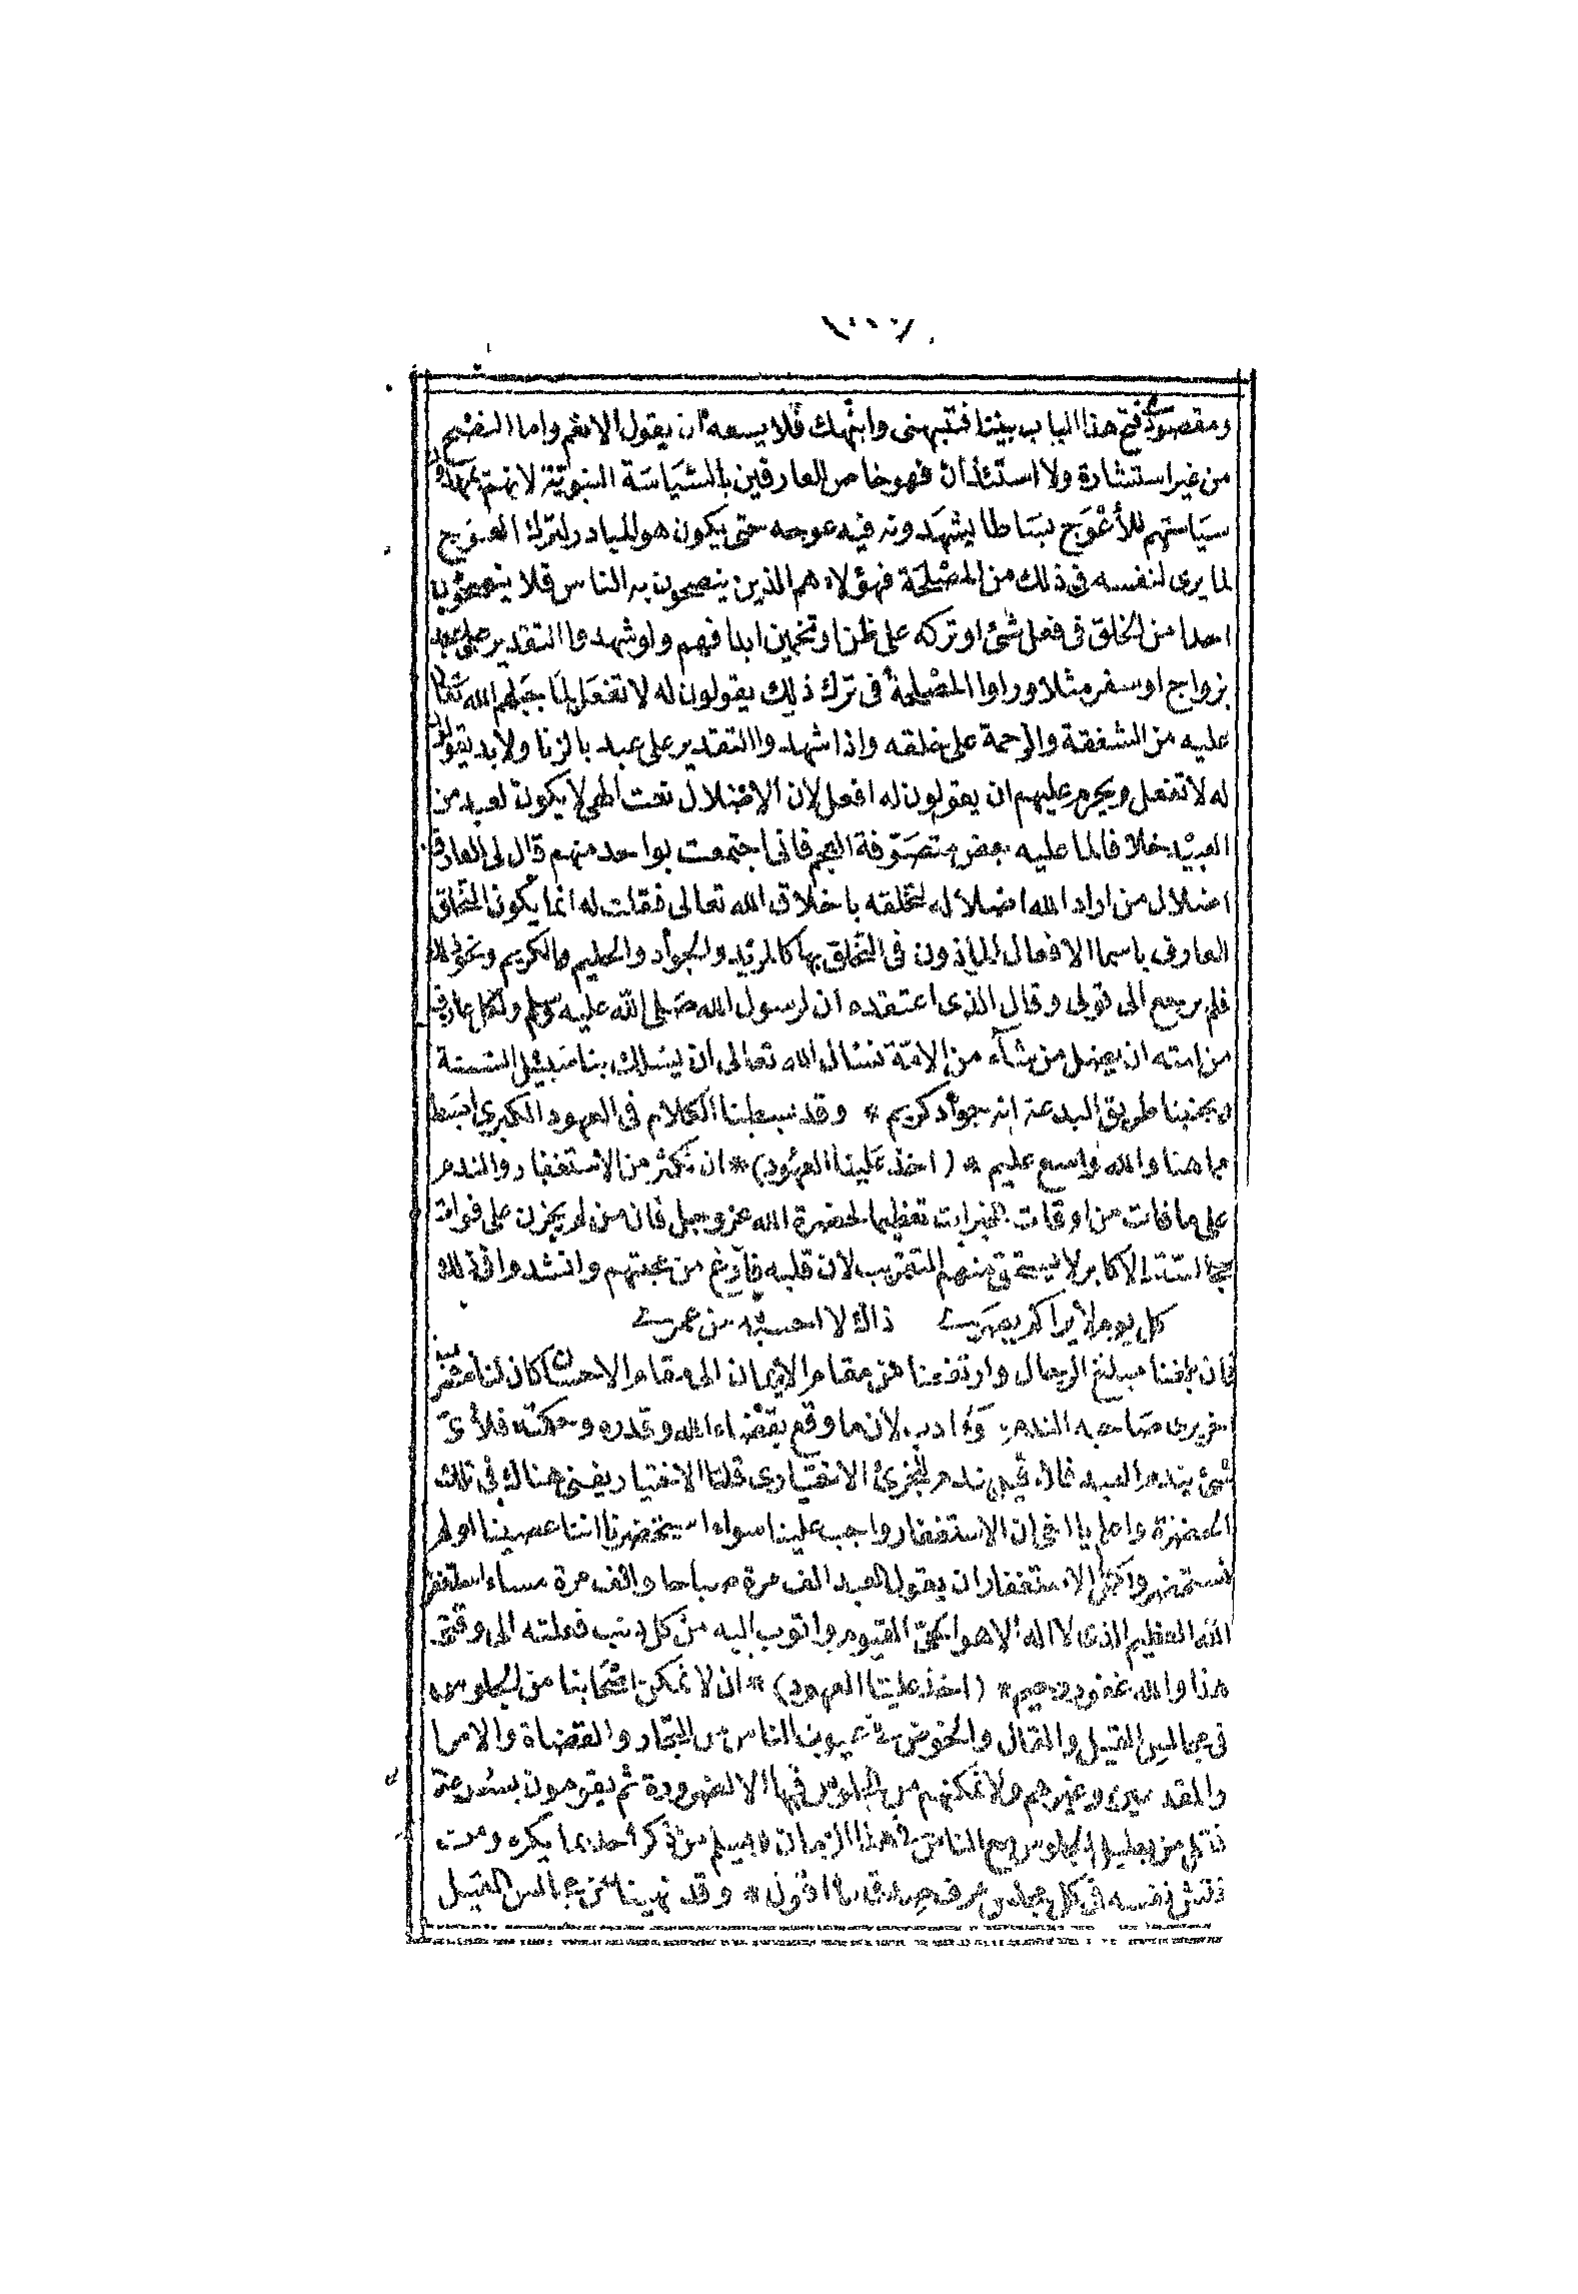 ومقصودى فتح هذا الباب بيننا فتنبهنى وانبهك فلا يسعه ان يقول الانعم واما النصح
من غير استشارة ولا استئذان فهو خاص بالعارفين بالسياسة النبوية لانهم يمهدون
سياستهم للأعوج بساطا يشهدونه فيه عوجه حتى يكون هو المبادر لترك العوج
لما يرى لنفسه فى ذلك من المصلحة فهؤلاء هم الذين ينصحون بر الناس فلا ينصحون
احدا من الخلق فى فعل شئ او تركه على ظن او تخمين ابدا فهم ولو شهدوا التقدير على عبد
بزواج او سفر مثلا وراوا المصلحة فى ترك ذلك يقولون له لا تفعل لما جبلهم الله تعالى
عليه من الشفقة والرحمة على خلقه واذا شهدوا التقدير على عبد بالزنا ولا بد يقولون
له لا تفعل ويحرم عليهم ان يقولون له افعل لان الاضلال نعت الهى لا يكون لعبد من
العبيد خلافا لما عليه بعض متصوفة العجم فانى اجتمعت بواحد منهم قال لى للعارف
اضلال من اراد الله اضلاله لتخلقه باخلاق الله تعالى فقلت له انما يكون التخلق
العارف باسما الافعال الماذون فى التخلق بها كالمريد والجواد والحليم والكريم ونحو ذلك
فلم يرجع الى قولى وقال الذى اعتقده ان لرسول الله صلى الله عليه وسلم ولكل عارف
من امته ان يضل من شآء من الامة نسال الله تعالى ان يسلك بنا سبيل السنة
ويجنبنا طريق البدعة انه جواد كريم * وقد بسطنا الكلام فى العهود الكبرى ابسط
مما هنا والله واسع عليم * (اخذ علينا العهود) * ان نكثر من الاستغفار والندم
على ما فات من اوقات الخيرات تعظيما لحضرة الله عز وجل فان من لم يحزن على فوات
مجالسة الاكابر لا يستحق منهم التقريب لان قلبه فارغ من محبتهم وانشدوا فى ذلك
كل يوم لا يراكم بصرى ذاك لا احسبه من عمرى
فان بلغنا مبلغ الرجال وارتفعنا من مقام الايمان الى مقام الاحسان كان لنا مشهد
اخر يرى صاحبه الندم ادب لان ما وقع بقضاء الله وقدره وحكمته فلأى
شئ يندم العبد فان قيل ندم للجزئ الاختيارى قلنا الاختيار يفنى هناك فى تلك
الحضرة واعلم يا اخى ان الاستغفار واجب علينا سواء استحضرنا اننا عصينا او لم
نستحضر واكمل الاستغفار ان يقول العبد الف مرة صباحا والف مرة مساء استغفر
الله العظيم الذى لا اله الا هو الحى القيوم واتوب اليه من كل ذنب فعلته الى وقتى
هذا والله غفور رحيم * (اخذ علينا العهود) * ان لا نمكن اصحابنا من الجلوس
فى مجالس القيل والقال والخوض فى عيوب الناس من التجار والقضاة والامرا
والمقدمين وغيرهم ولا نمكنهم من الجلوس فيها الا لضرورة ثم يقومون بسرعة
فاقل من يطيل الجلوس مع الناس فى هذا الزمان ويسلم من ذكر احد بما يكره ومن
فتش نفسه فى كل مجلس عرف صدق ما اقول * وقد نهينا عن مجالس القيل